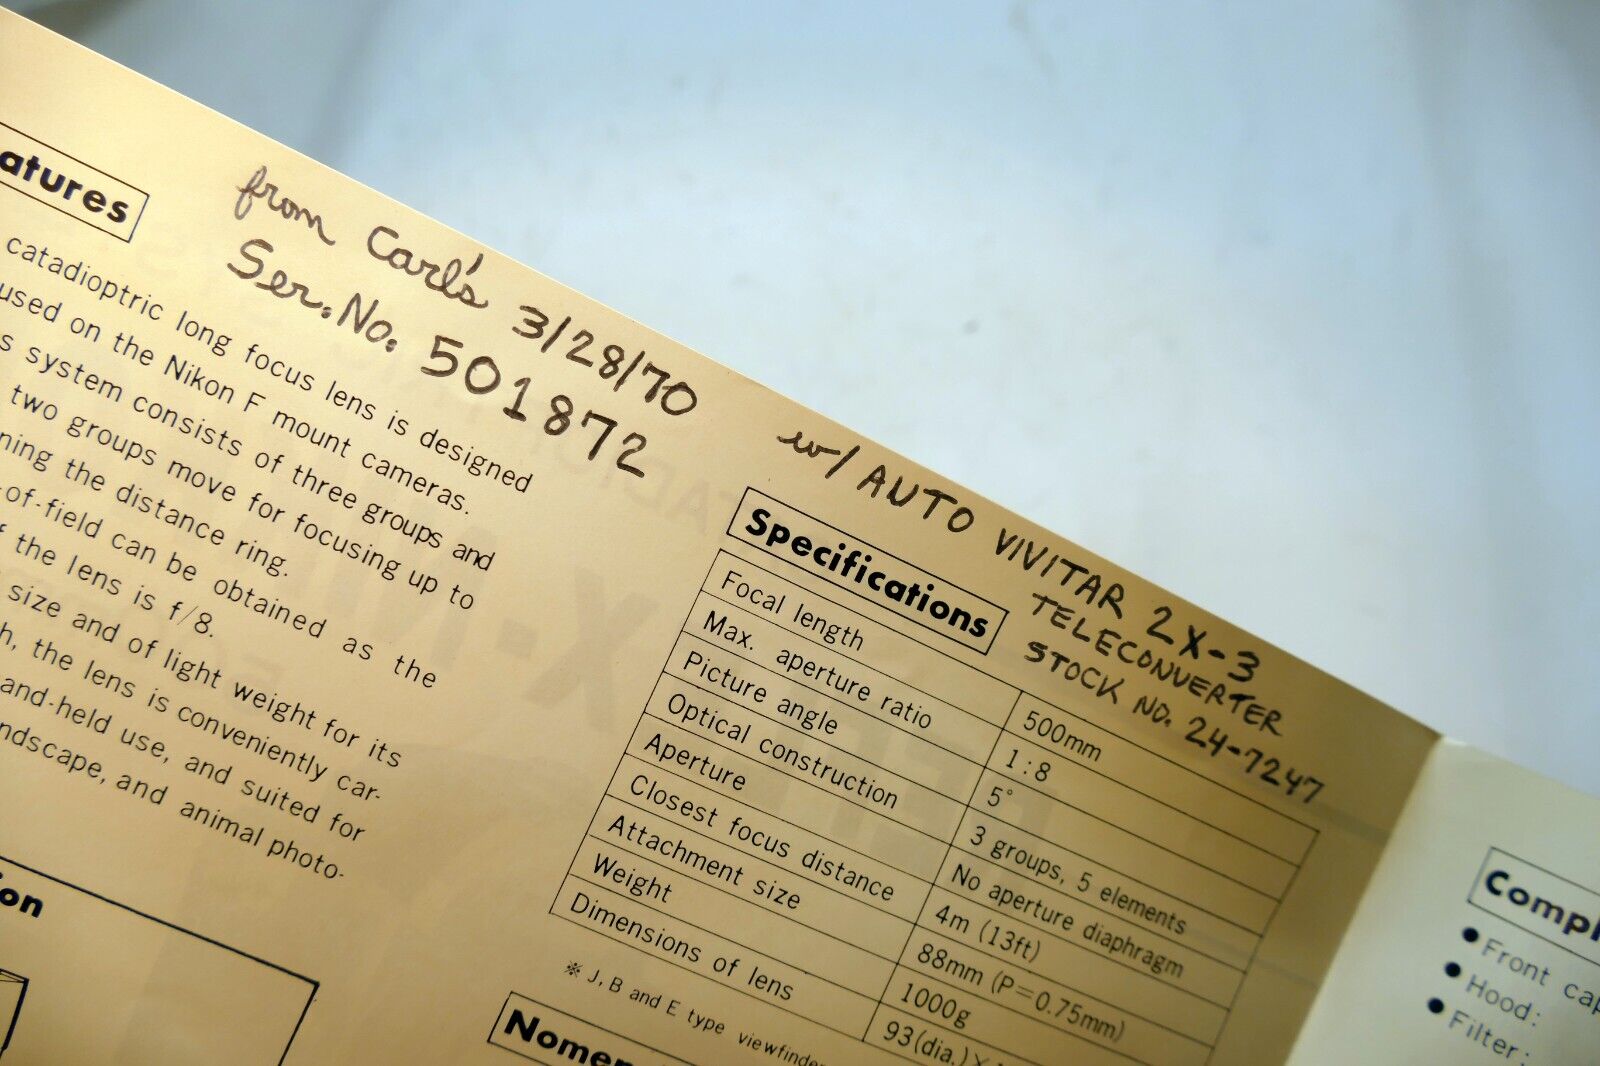 atures
from Carl's 3/28/70
Ser. No. 501872
catadioptric long focus lens is designed
used on the Nikon F mount cameras.
s system consists of three groups and
two groups move for focusing up to
ning the distance ring.
-of-field can be obtained as the
f the lens is f/8.
size and of light weight for its
h, the lens is conveniently car-
and-held use, and suited for
ndscape, and animal photo-
on
w/ AUTO VIVITAR 2X-3
TELECONVERTER
STOCK NO. 24-7247
Specifications
Focal length 500mm
Max. aperture ratio 1:8
Picture angle 5°
Optical construction 3 groups, 5 elements
Aperture No aperture diaphragm
Closest focus distance 4m (13ft)
Attachment size 88mm (P=0.75mm)
Weight 1000g
Dimensions of lens 93(dia.)×
※ J, B and E type viewfinde
Nomen
Compl
● Front cap
● Hood:
● Filter: